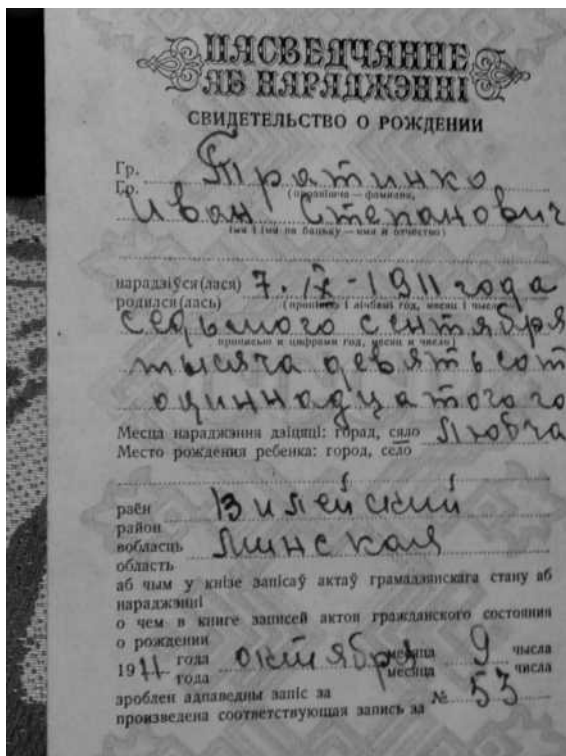 ПАСВЕДЧАННЕ
АБ НАРАДЖЭННІ
СВИДЕТЕЛЬСТВО О РОЖДЕНИИ
Гр.
Гр. Тратинко
(прозвішча — фамилия,
Иван Степанович
імя і імя па бацьку — имя и отчество)
нарадзіўся(лася) 7.IX-1911 года
родился(лась) (пропіссю і лічбамі год, месяц і чысло)
седьмого сентября
прописью и цифрами год, месяц и число)
тысяча девятьсот
одиннадцатого го
Месца нараджэння дзіцяці: горад, сяло Любча
Место рождения ребенка: город, село
раён Вилейский
район
вобласць Минская
область
аб чым у кнізе запісаў актаў грамадзянскага стану аб
нараджэнні
о чем в книге записей актов гражданского состояния
о рождении
1911 года октября месяца 9 чысла
года месяца числа
зроблен адпаведны запіс за № 53
произведена соответствующая запись за